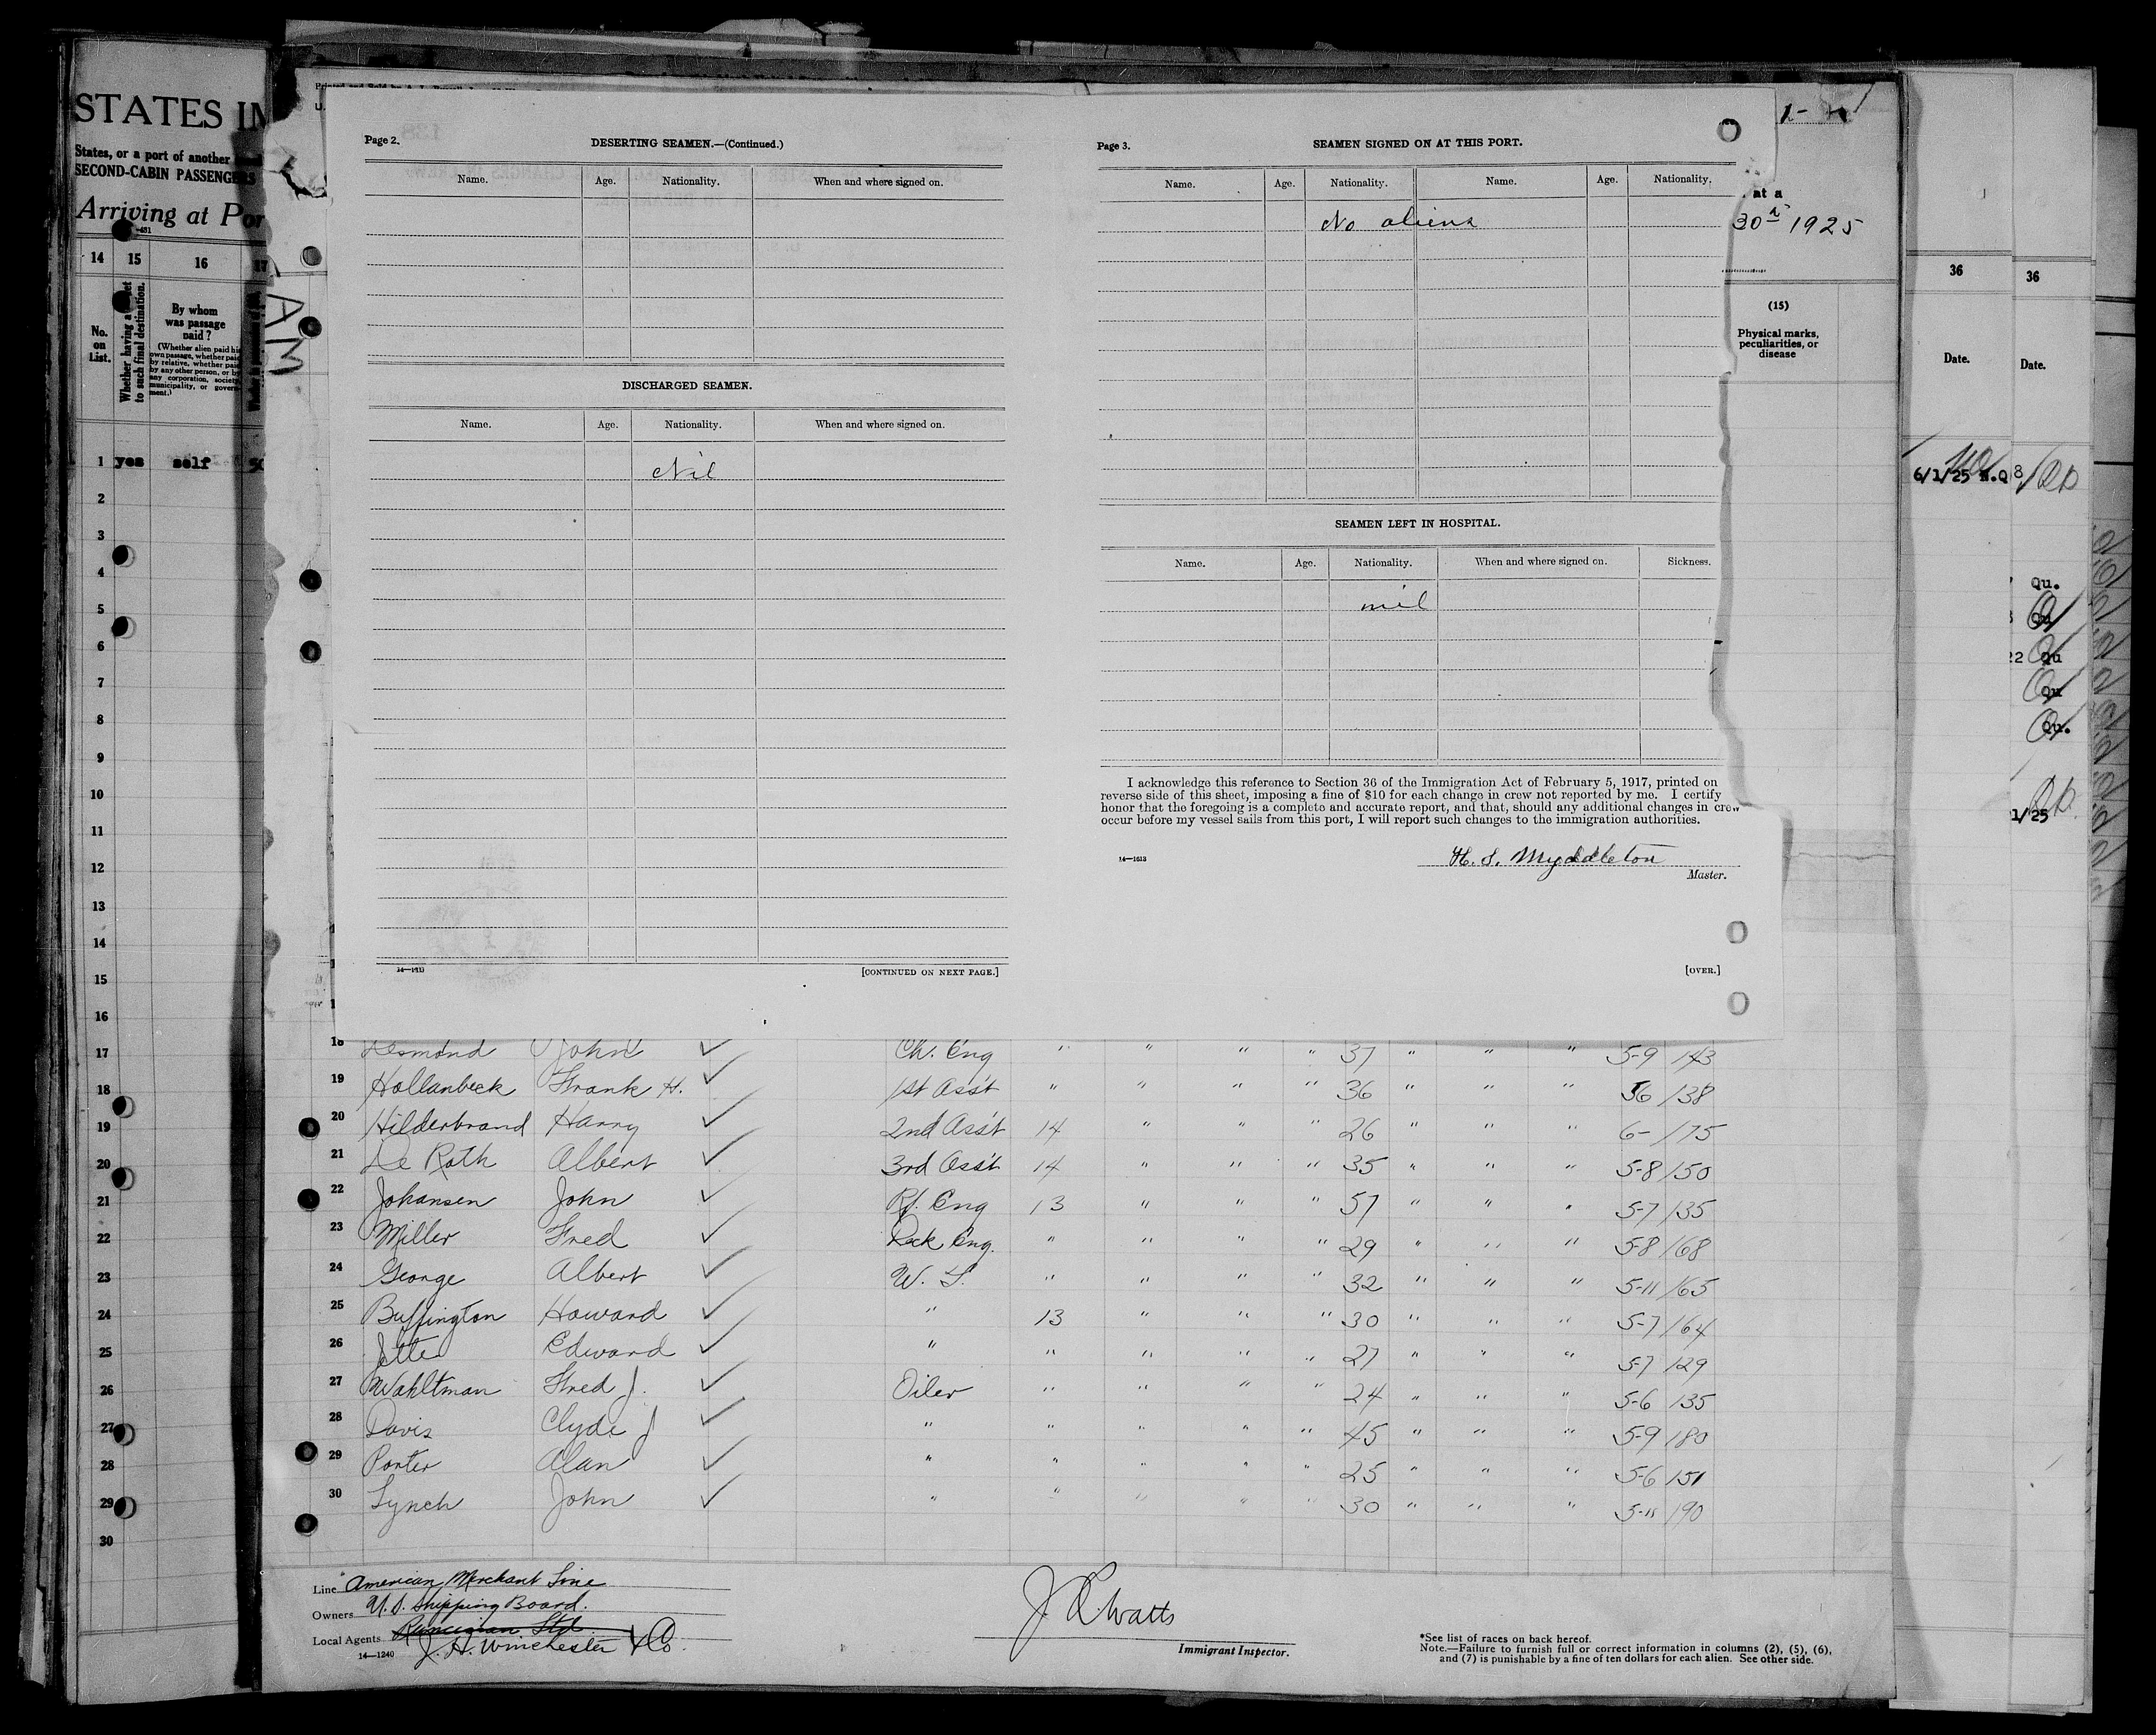 STATES IM
States, or a port of another
SECOND-CABIN PASSENGERS
Arriving at Por
14 15 16 17
No. on List.
Whether having a ticket to such final destination.
By whom was passage paid?
(Whether alien paid his own passage, whether paid by relative, whether paid by any other person, or by any corporation, society, municipality, or government.)
1 yes self 50
2
3
4
5
6
7
8
9
10
11
12
13
14
15
16
17
18
19
20
21
22
23
24
25
26
27
28
29
30
AM
Page 2.
DESERTING SEAMEN.—(Continued.)
Name. Age. Nationality. When and where signed on.
DISCHARGED SEAMEN.
Name. Age. Nationality. When and where signed on.
Nil
14—1613
[CONTINUED ON NEXT PAGE.]
Page 3.
SEAMEN SIGNED ON AT THIS PORT.
Name. Age. Nationality. Name. Age. Nationality.
No aliens
SEAMEN LEFT IN HOSPITAL.
Name. Age. Nationality. When and where signed on. Sickness.
nil
I acknowledge this reference to Section 36 of the Immigration Act of February 5, 1917, printed on
reverse side of this sheet, imposing a fine of $10 for each change in crew not reported by me. I certify
honor that the foregoing is a complete and accurate report, and that, should any additional changes in crew
occur before my vessel sails from this port, I will report such changes to the immigration authorities.
14—1613
H. S. Myddleton
Master.
[OVER.]
at a
30th 1925
(15)
Physical marks, peculiarities, or disease
36 36
Date. Date.
6/1/25 N.Q 8
Qu.
Qu
22 Qu
Qu
Qu.
1/25
18 Desmond John Ch. Eng " " " " 37 " " " 5-9 143
19 Hollanbeck Frank H. 1st Ass't " " " " 36 " " " 56 138
20 Hilderbrand Harry 2nd Ass't 14 " " " 26 " " " 6- 175
21 De Roth Albert 3rd Ass't 14 " " " 35 " " " 5-8 150
22 Johansen John Rf. Eng 13 " " " 57 " " " 5-7 135
23 Miller Fred Deck Eng. " " " " 29 " " " 5-8 168
24 George Albert W. T. " " " " 32 " " " 5-11 165
25 Buffington Howard " 13 " " " 30 " " " 5-7 164
26 Jette Edward " " " " " 27 " " " 5-7 129
27 Wahltman Fred J. Oiler " " " " 24 " " " 5-6 135
28 Davis Clyde J " " " " " 45 " " " 5-9 180
29 Porter Alan " " " " " 25 " " " 5-6 151
30 Lynch John " " " " " 30 " " " 5-11 190
Line American Merchant Line
Owners U.S. Shipping Board.
Local Agents
J. H. Winchester & Co.
14—1240
J. R. Watts
Immigrant Inspector.
*See list of races on back hereof.
Note.—Failure to furnish full or correct information in columns (2), (5), (6),
and (7) is punishable by a fine of ten dollars for each alien. See other side.